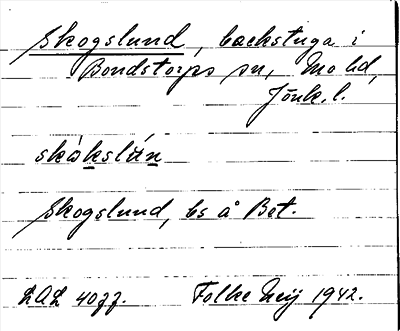 Skogslund, backstuga i
Bondstorps sn, Mo hd,
Jönk. l.
skåkslún
Skogslund, bs å Bet.
LAL 4077. Folke Neij 1942.